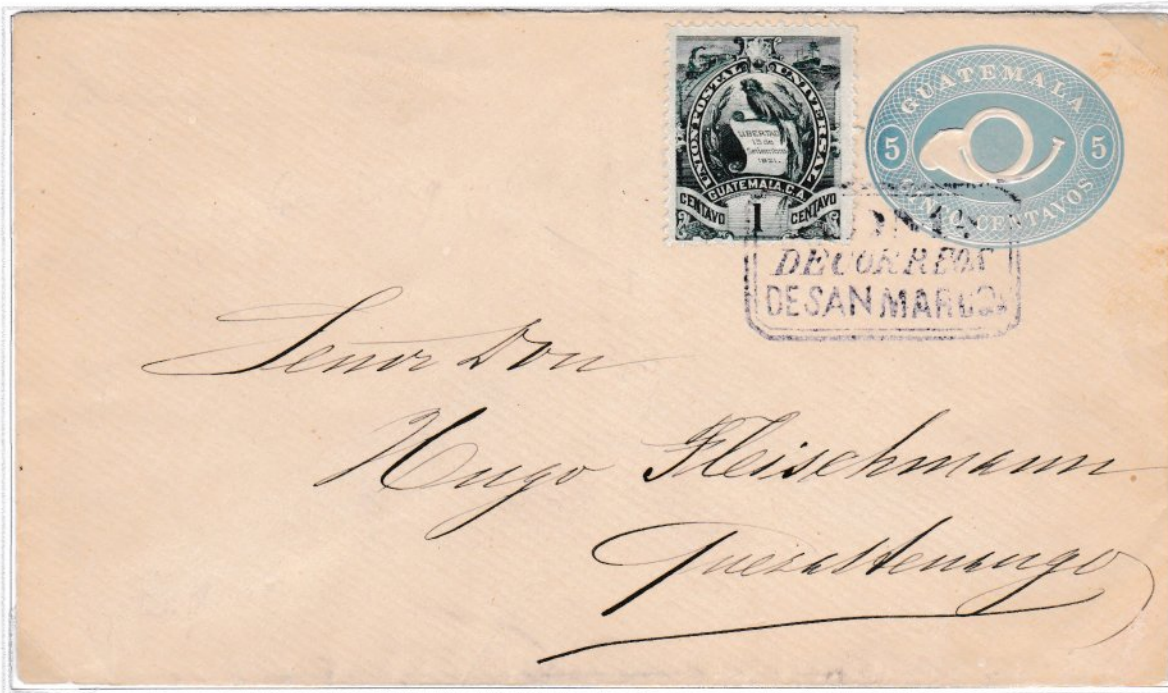 UNION POSTAL UNIVERSAL
LIBERTAD
15 de
Setiembre
1821.
GUATEMALA. C.A.
CENTAVO 1 CENTAVO
GUATEMALA
5 5
CINCO CENTAVOS
DE CORREOS
DE SAN MARCOS
Señor Don
Hugo Fleischmann
Quezaltenango